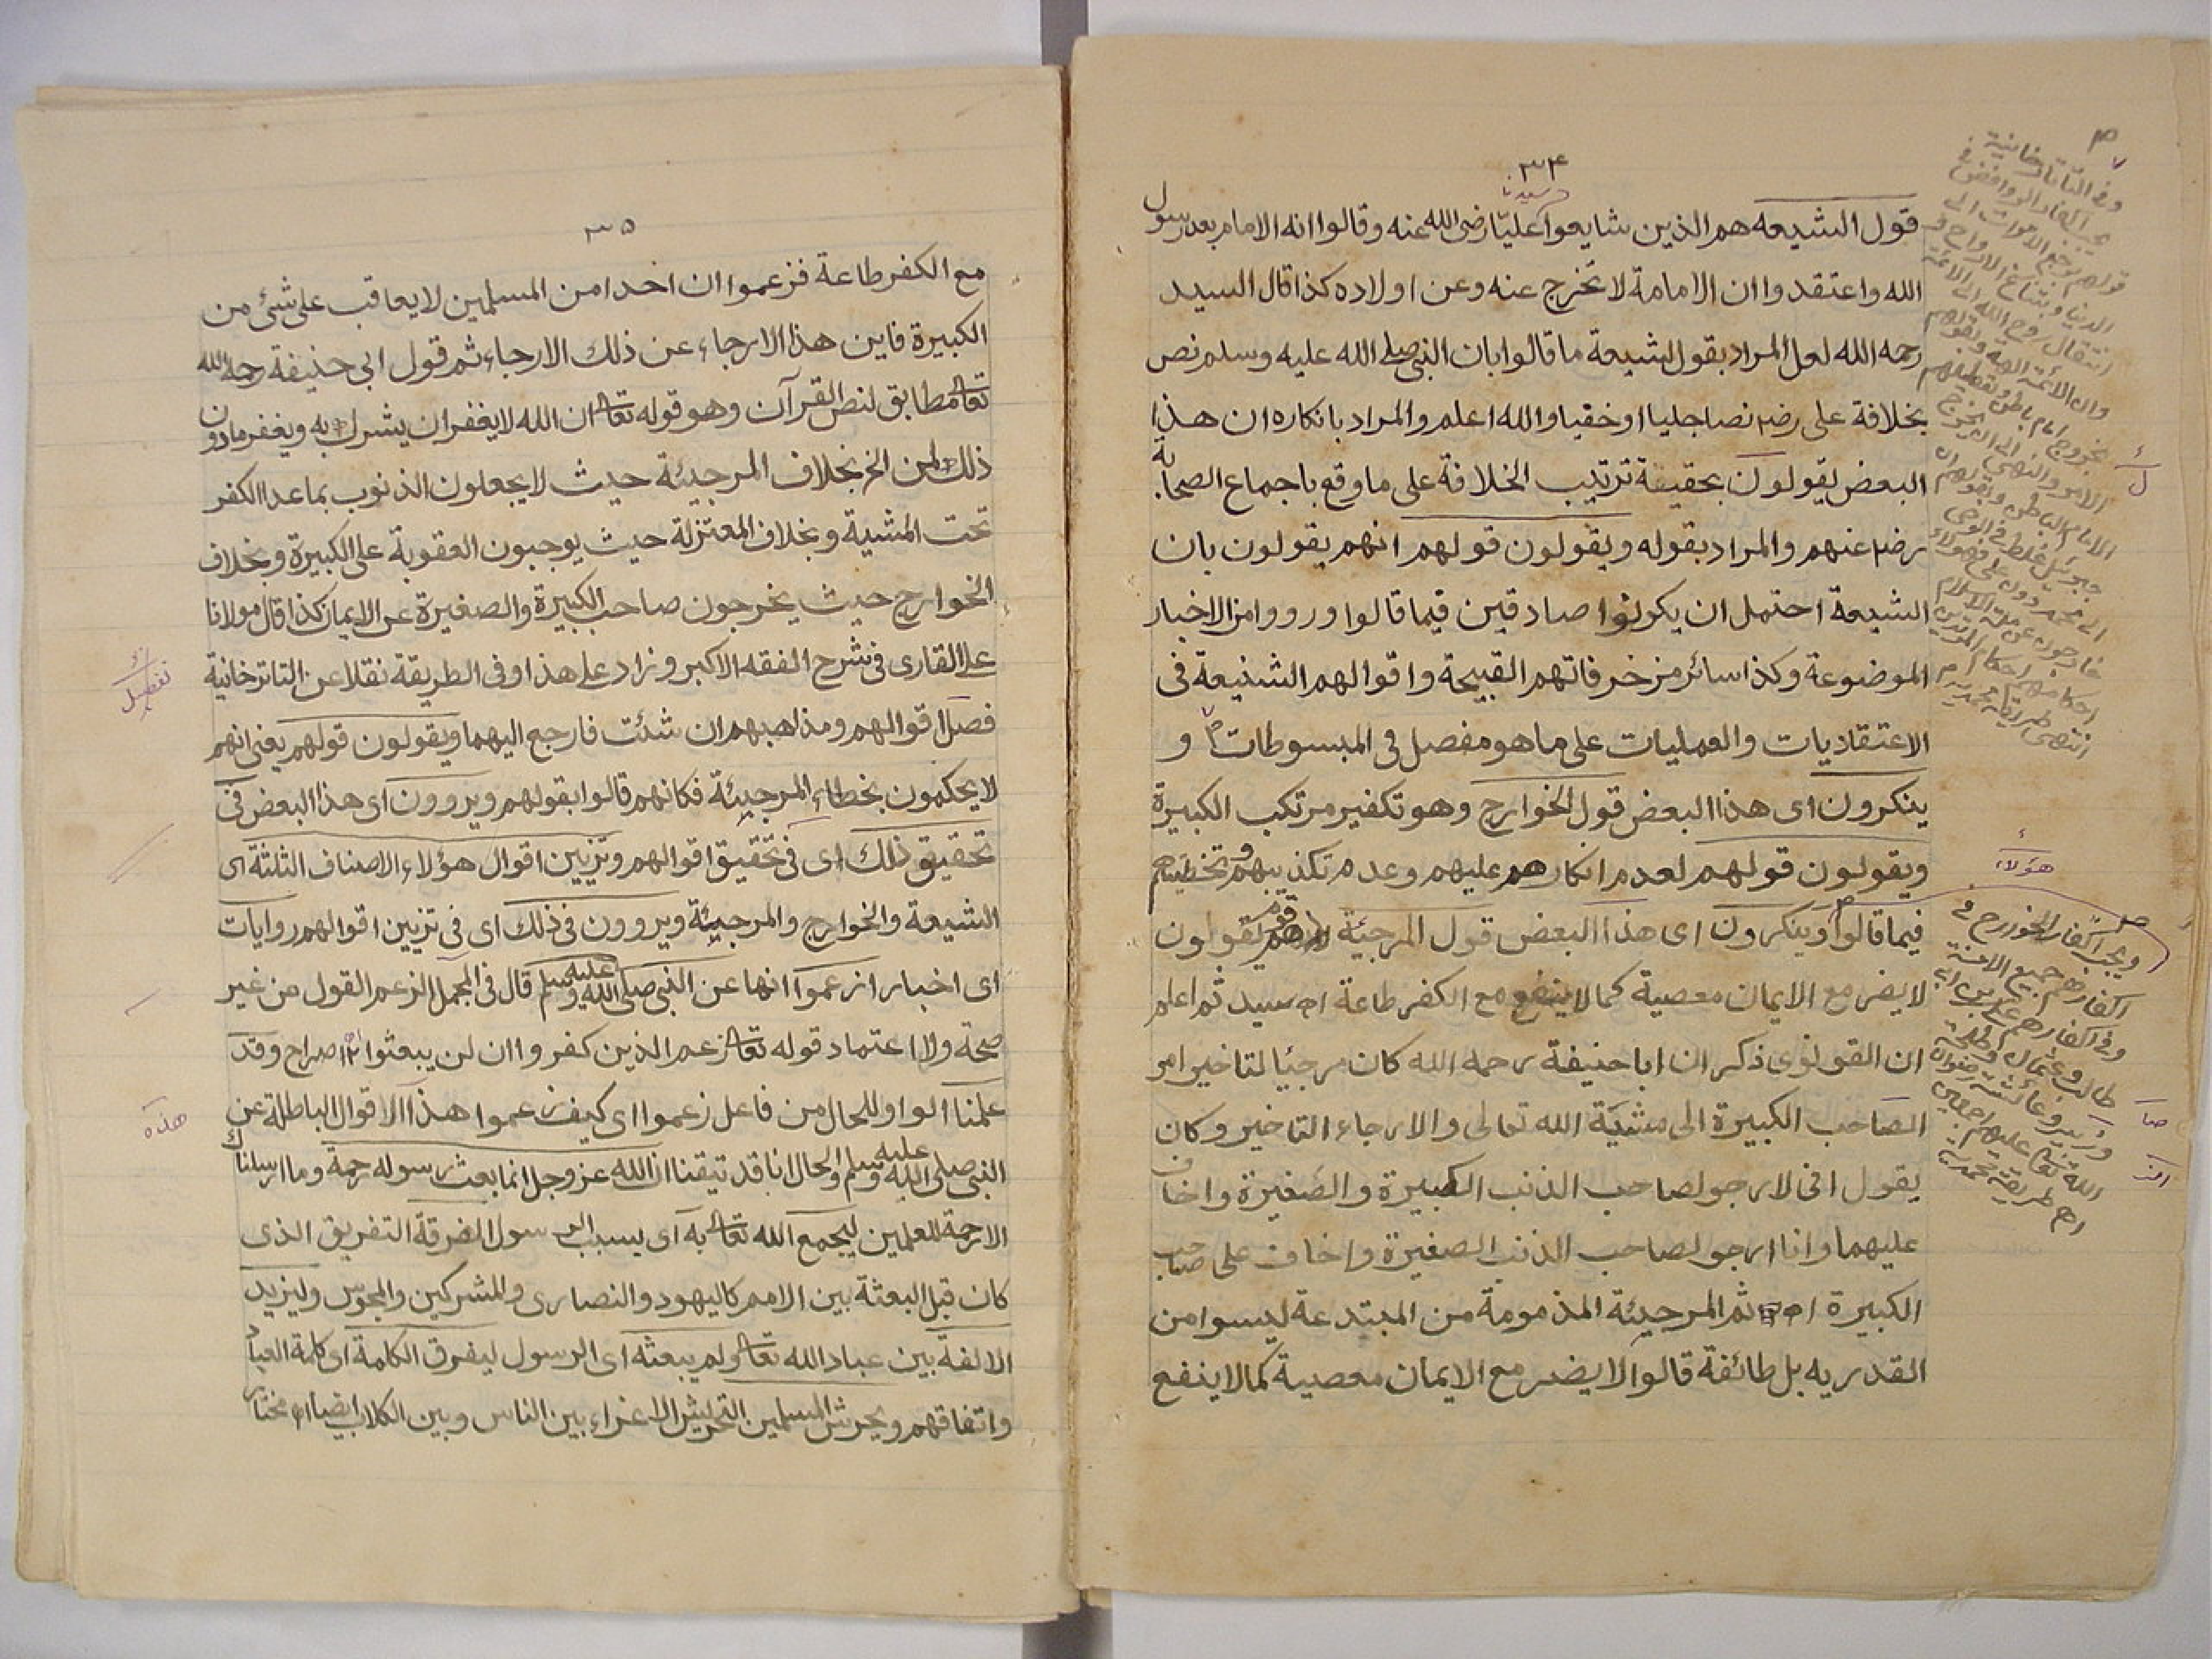 ٣٤
سيدنا
قول الشيعه هم الذين شايعوا عليا رضى الله عنه وقالوا انه الامام بعد رسول
الله واعتقدوا ان الامامة لا تخرج عنه وعن اولاده كذا قال السيد
رحمه الله لعل المراد بقول الشيعة ما قالوا بان النبى صلى الله عليه وسلم نص
بخلافة على رضـ نصا جليا او خفيا والله اعلم والمراد بانكاره ان هذا
البعض يقولون بحقيقة ترتيب الخلافة على ما وقع باجماع الصحابة
رضـ عنهم والمراد بقوله ويقولون قولهم انهم يقولون بان
الشيعة احتمل ان يكونوا صادقين فيما قالوا ورووا من الاخبار
الموضوعة وكذا سائر مزخرفاتهم القبيحة واقوالهم الشنيعة فى
الاعتقاديات والعمليات على ما هو مفصل فى المبسوطات و
ينكرون اى هذا البعض قول الخوارج وهو تكفير مرتكب الكبيرة
ويقولون قولهم لعدم انكارهم عليهم وعدم تكذيبهم وتخطيتهم
فيما قالوا وينكرون اى هذا البعض قول المرجئة هم قوم يقولون
لا يضر مع الايمان معصية كما لا ينفع مع الكفر طاعة اه سيد ثم اعلم
ان القونوى ذكر ان ابا حنيفة رحمه الله كان مرجئا لتاخير امر
الصاحب الكبيرة الى مشية الله تعالى والارجاء التاخير وكان
يقول انى لارجو لصاحب الذنب الكبيرة والصغيرة واخاف
عليهما وانا ارجو لصاحب الذنب الصغيرة واخاف على صاحب
الكبيرة اه ثم المرجيئة المذمومة من المبتدعة ليسوا من
القدريه بل طائفة قالوا لا يضر مع الايمان معصية كما لا ينفع
وفى التاتارخانية
يجب اكفار الروافض فى
قولهم برجع الاموات الى
الدنيا وبتناسخ الارواح و
انتقال روح الله الى الائمة
وان الائمة الهة وبقولهم
بخروج امام باطن وتعطيلهم
الامر والنهى الى ان يخرج
الامام الباطن وبقولهم ان
جبرئيل غلط فى الوحى
الى محمد دون على فهؤلاء
خارجون عن ملة الاسلام
احكامهم احكام المرتدين
انتهى طريقة محمدية
هؤلاء
ويجب اكفار الخوارج فى
اكفارهم جميع الامة
وفى اكفارهم على بن ابى
طالب وعثمان وطلحة
وزبير وعائشة رضوان
الله تعالى عليهم اجمعين
اه طريقة محمدية
٣٥
مع الكفر طاعة فزعموا ان احدا من المسلمين لا يعاقب على شئ من
الكبيرة فاين هذا الارجاء عن ذلك الارجاء ثم قول ابى حنيفة رحمه الله
تعا مطابق لنص القرآن وهو قوله تعا ان الله لا يغفر ان يشرك به ويغفر ما دون
ذلك لمن الخ بخلاف المرجيئة حيث لا يجعلون الذنوب بما عدا الكفر
تحت المشية وبخلاف المعتزلة حيث يوجبون العقوبة على الكبيرة وبخلاف
الخوارج حيث يخرجون صاحب الكبيرة والصغيرة عن الايمان كذا قال مولانا
على القارى فى شرح الفقه الاكبر وزاد على هذا وفى الطريقة نقلا عن التاتارخانية
فصل اقوالهم ومذاهبهم ان شئت فارجع اليهما ويقولون قولهم يعنى انهم
لا يحكمون بخطاء المرجيئة فكانهم قالوا بقولهم ويروون اى هذا البعض فى
تحقيق ذلك اى فى تحقيق اقوالهم وتزيين اقوال هؤلاء الاصناف الثلثة اى
الشيعة والخوارج والمرجيئة ويروون فى ذلك اى فى تزيين اقوالهم روايات
اى اخبارا زعموا انها عن النبى صلى الله عليه وسلم قال فى المجمل الزعم القول من غير
صحة ولا اعتماد قوله تعا زعم الذين كفروا ان لن يبعثوا اه صراح وقد
علمنا الواو للحال من فاعل زعموا اى كيف زعموا هذا الاقوال الباطلة عن
النبى صلى الله عليه وسلم والحال انا قد تيقنا ان الله عز وجل انما بعث رسوله رحمة وما ارسلناك
الا رحمة للعلمين ليجمع الله تعا به اى بسبب الرسول الفرقة التفريق الذى
كان قبل البعثة بين الامم كاليهود والنصارى والمشركين والمجوس وليزيد
الالفة بين عباد الله تعا ولم يبعثه اى الرسول ليفرق الكلمة اى كلمة العباد
واتفاقهم ويحرش المسلمين التحريش الاغراء بين الناس وبين الكلاب ايضا اه مختار
تفصيل
هذه